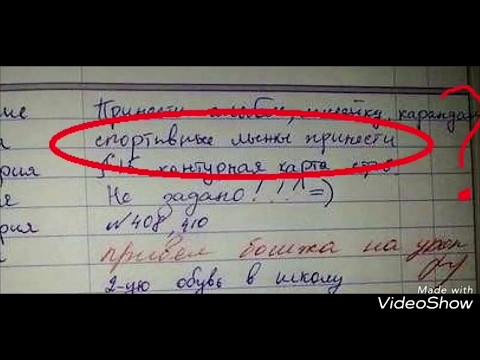 ие Принести альбом, линейку, каранда
спортивные лыжы принести
рия контурная карта стр
я Не задано!!! =)
рия №408, 410
привел бомжа на урок
2-ую обувь в школу
Made with
VideoShow